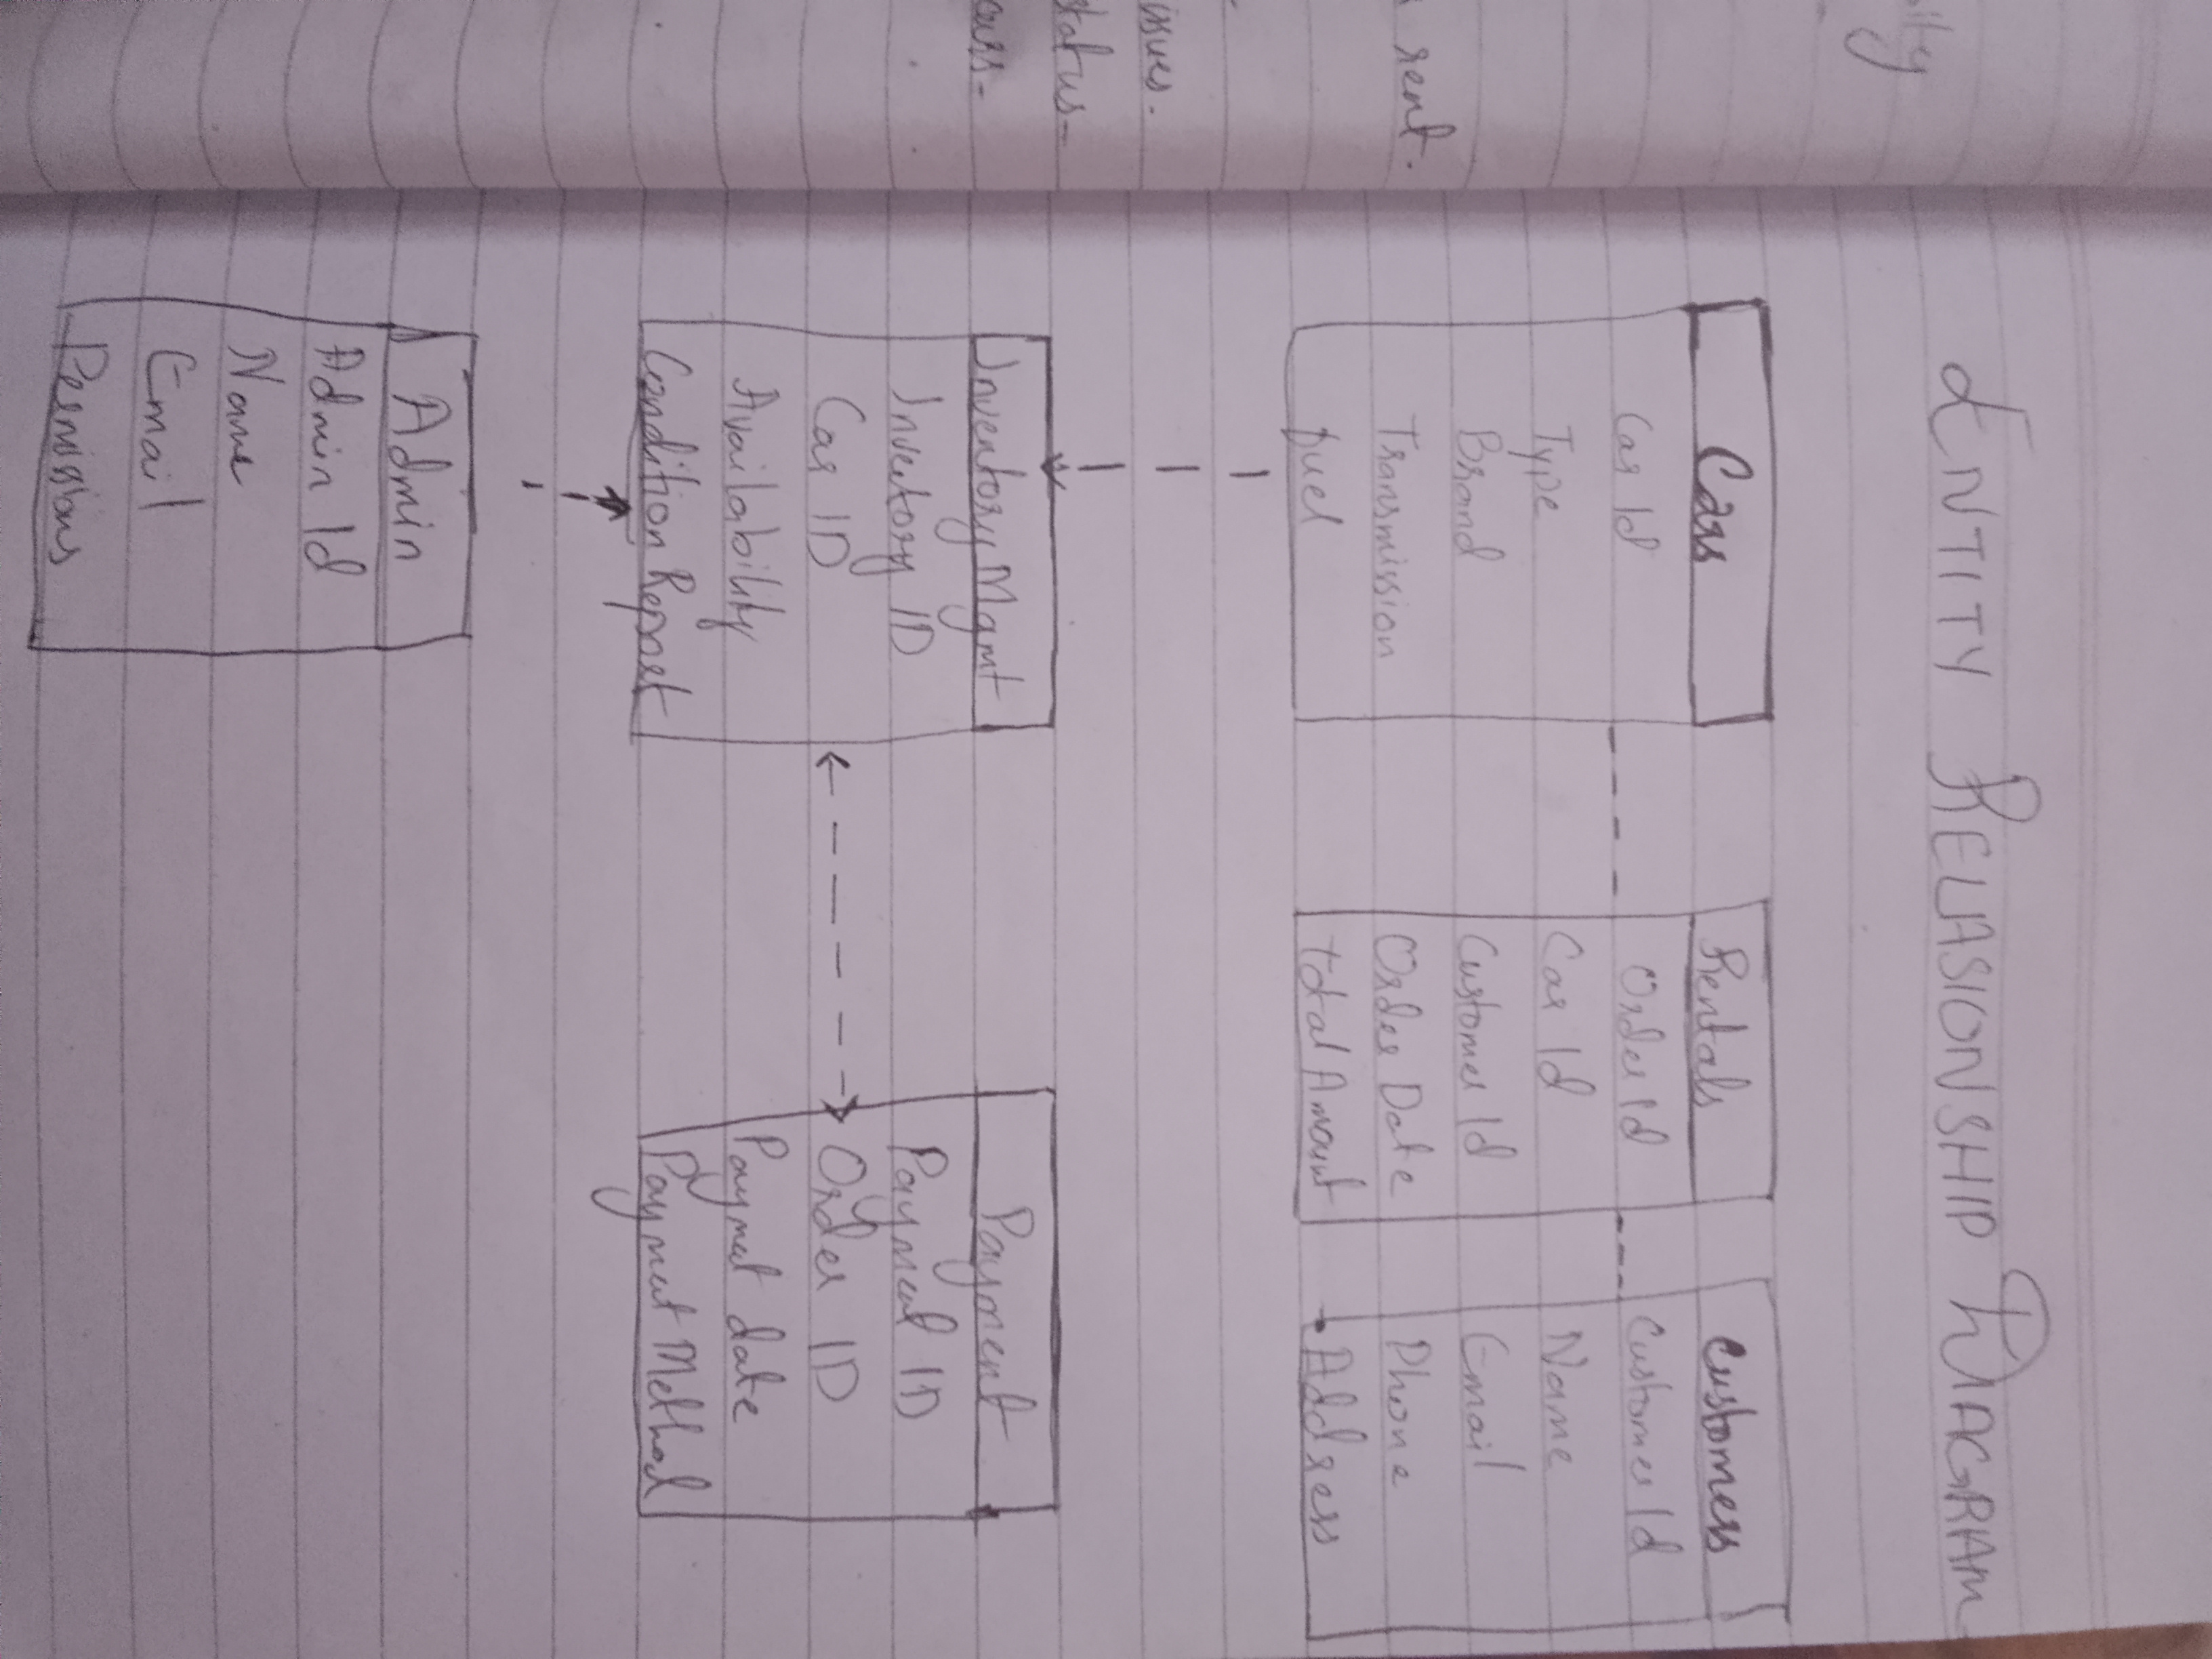 ENTITY RELIASIONSHIP DIAGRAM
Cars
Car Id
Type
Brand
Transmission
fuel
Rentals
Order Id
Car Id
Customer Id
Order Date
total Amount
Customers
Customer Id
Name
Email
Phone
Address
Inventory Mgmt
Inventory ID
Car ID
Availability
Condition Report
Payment
Payment ID
Order ID
Payment date
Payment Method
Admin
Admin Id
Name
Email
Permissions
rent.
issues.
status-